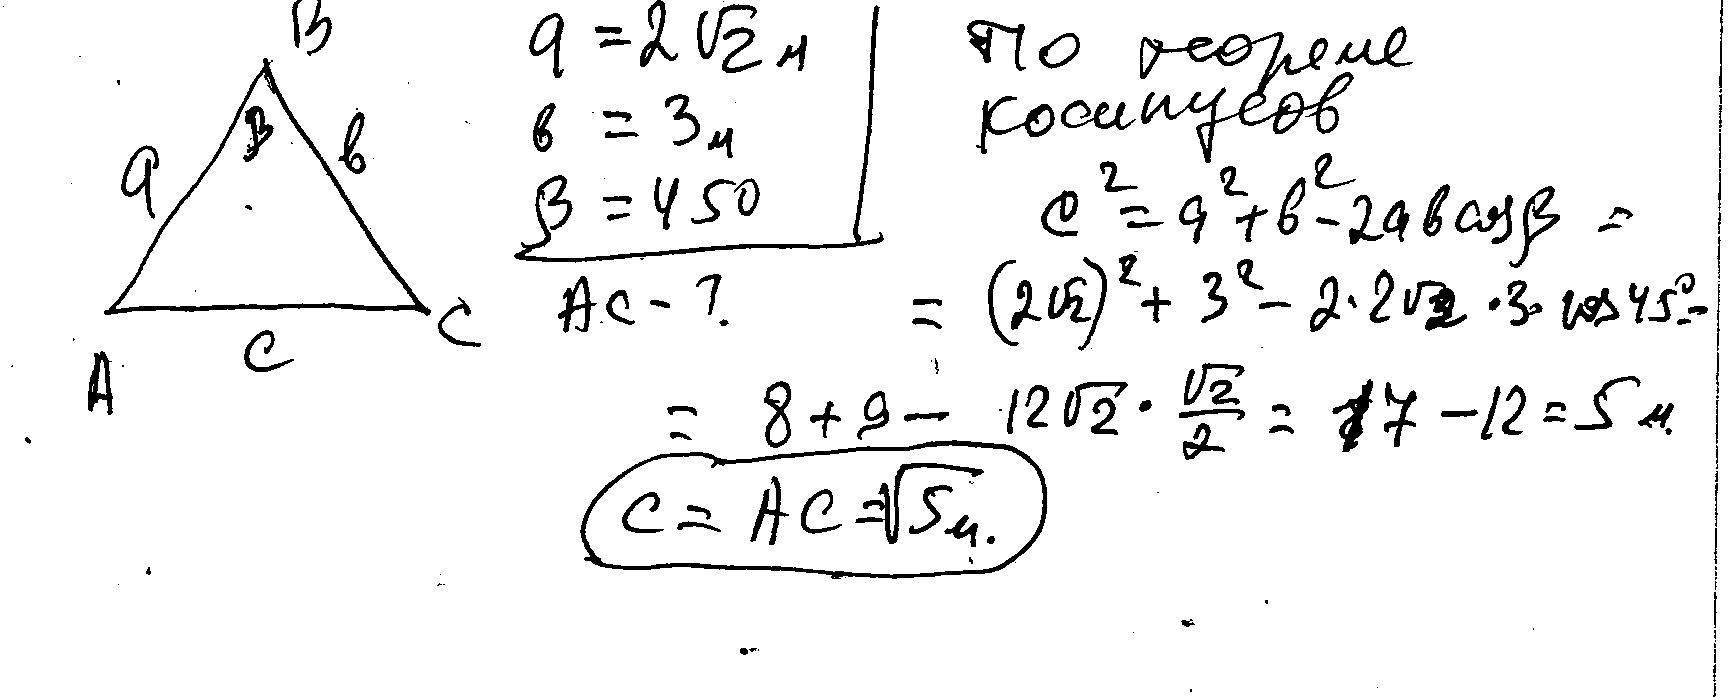 B
β
a
b
A
c
C
a = 2√2 м
b = 3м
β = 450
AC - ?
По теореме
косинусов
c² = a² + b² - 2ab cosβ =
= (2√2)² + 3² - 2·2√2 ·3· cos45° =
= 8 + 9 - 12√2 · √2/2 = 17 - 12 = 5 м.
c = AC = √5м.